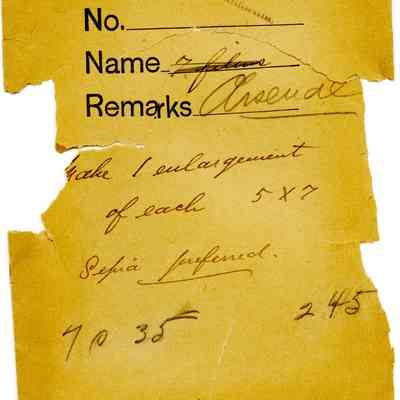 No.
Name 7 films
Remarks Arsenal
Make 1 enlargement
of each 5 X 7
Sepia preferred.
7 @ 35 2 45